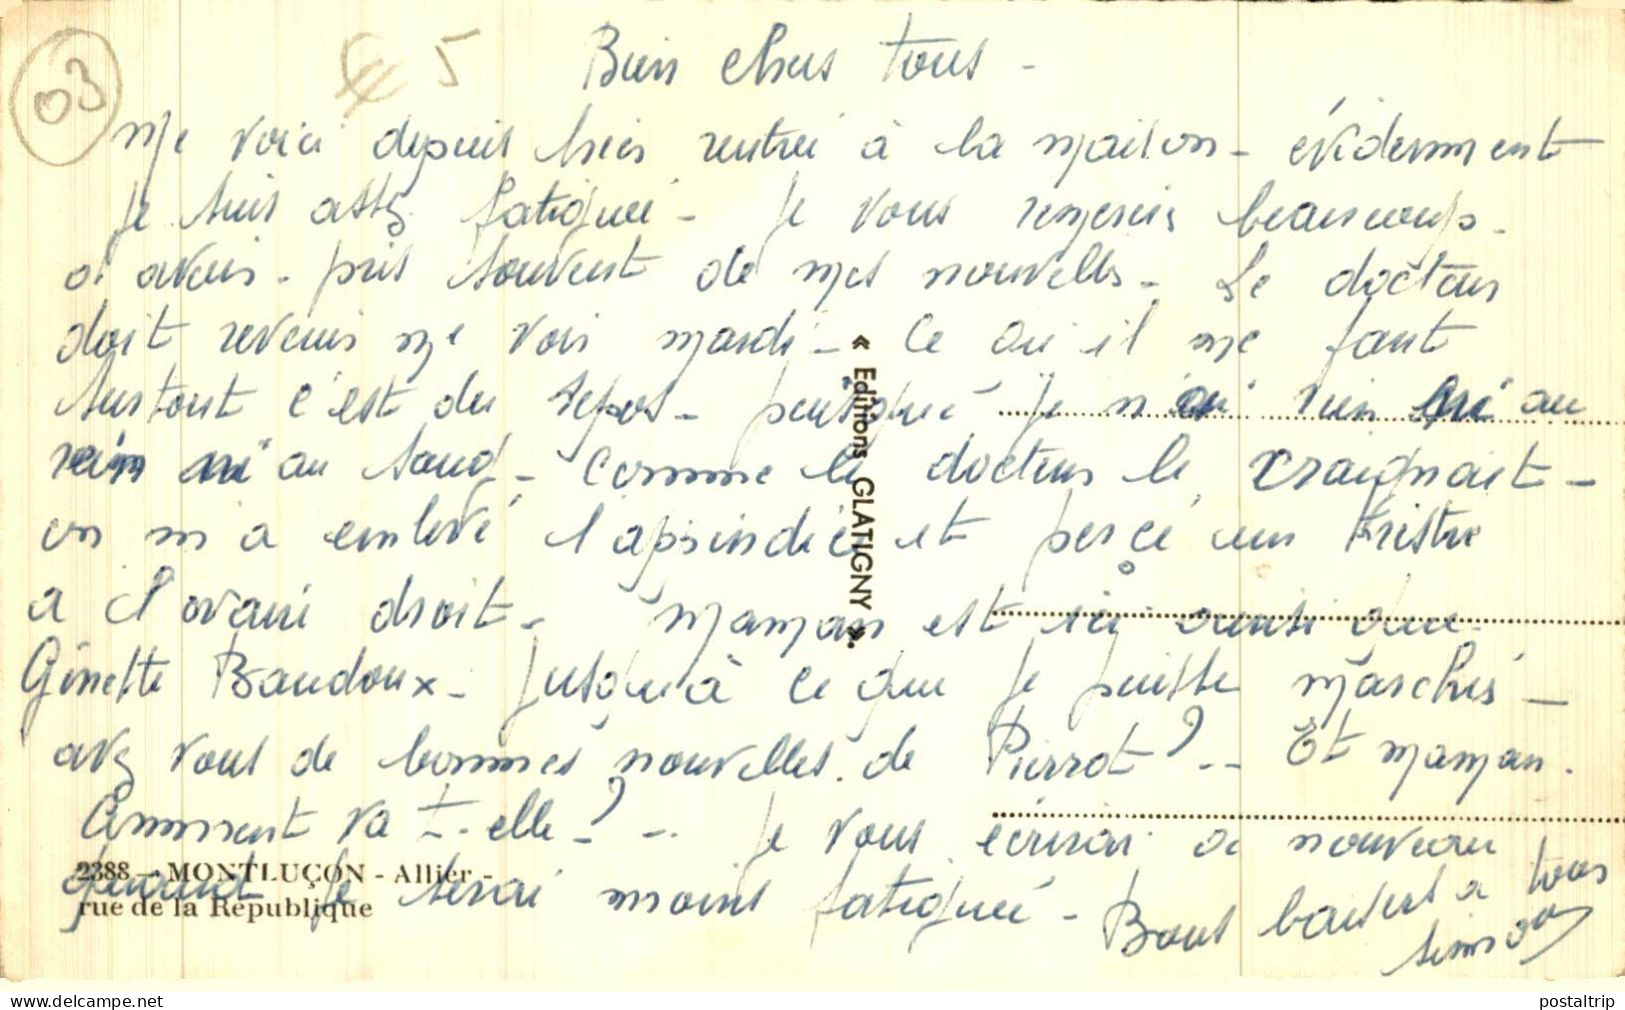 03
5
Bien chers tous -
Me voici depuis hier rentrée à la maison - évidemment
je suis assez fatiguée - je vous remercie beaucoup -
d'avoir - pris souvent de mes nouvelles - Le docteur
doit revenir me voir mardi - Ce qu'il me faut
surtout c'est du repos - puisque je n'ai rien ni au
rein ni au sang - Comme le docteur le craignait -
on m'a enlevé l'appendice et percé un kriste
a l'ovaire droit - Maman est ici ainsi que
Ginette Baudoux - jusqu'à ce que je puisse marcher -
avez vous de bonnes nouvelles de Pierrot ? -- Et maman.
Comment va t-elle ? -- je vous écrirai de nouveau
quand je serai moins fatiguée - Bons baisers a tous
Simone
« Editions GLATIGNY ».
2388 - MONTLUÇON - Allier -
rue de la République
postaltrip.com
postaltrip